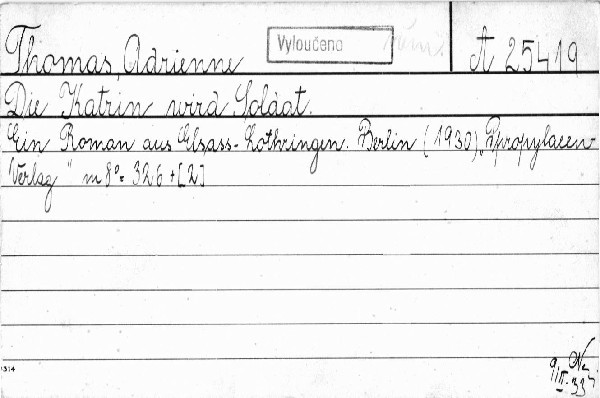 Thomas, Adrienne Vyloučeno A 25419
Die Katrin wird Soldat.
Ein Roman aus Elsass-Lothringen. Berlin (1930) „Propylaeen-
Verlag" m 8°= 326+[2]
1314
9/III.33